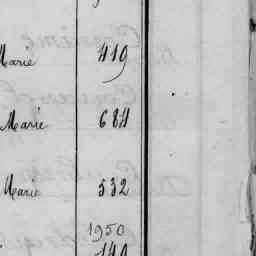 Marie 419
Marie 684
Marie 532
1950